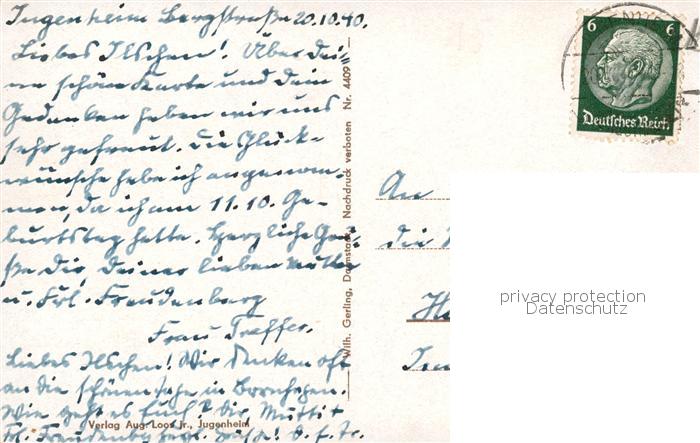 Jugenheim Bergstraße 20.10.40.
Liebes Ilschen! Über dei=
ne schöne Karte und dein
Gedenken haben wir uns
sehr gefreut. Die Glück-
wünsche habe ich angenom-
men, da ich am 11.10. Ge-
burtstag hatte. Herzliche Grü=
ße Dir, Deiner lieben Mutter
u. Frl. Freudenberg
Frau Treffer.
Liebes Ilschen! Wir denken oft
an die schönen Tage in
Wie geht es Euch? Dir, Mutti +
Frl. Freudenbg
Verlag Aug. Loos Jr., Jugenheim
Wilh. Gerling, Darmstadt Nachdruck verboten Nr. 4409
6 6
Deutsches Reich
An
die
privacy protection
Datenschutz